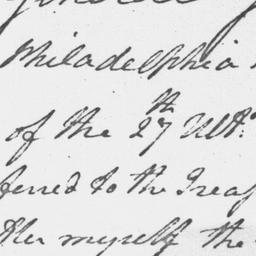 Philadelphia
of the 27th Ult.
ferred to the Treas
myself the